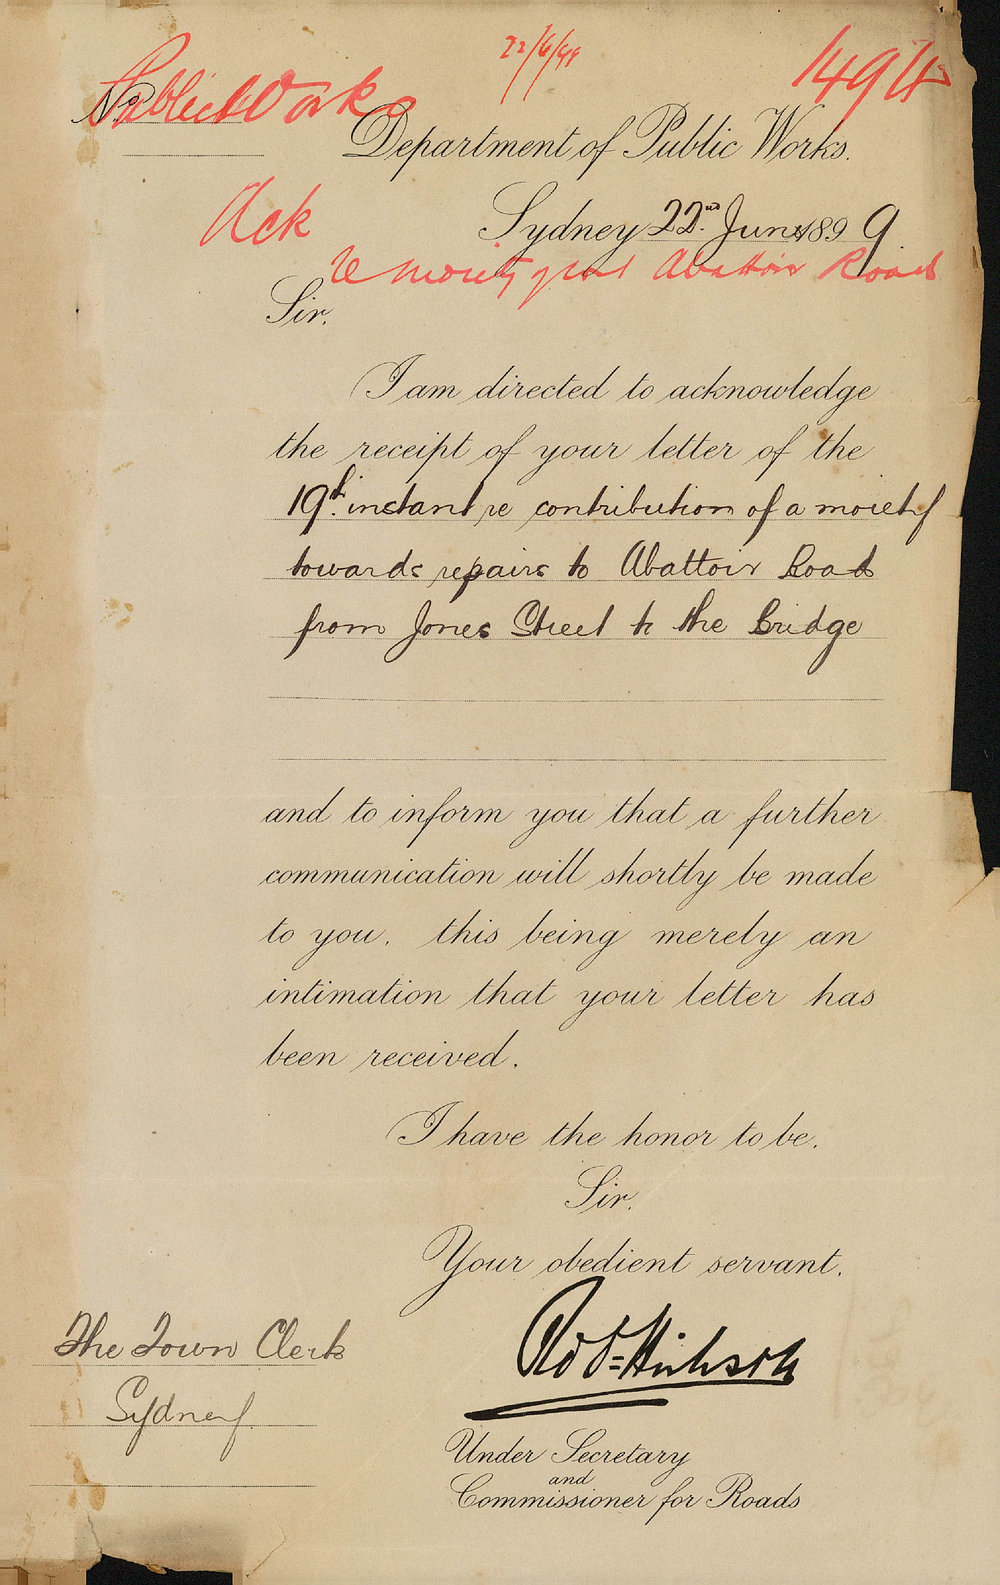 22/6/99
Public Works
No.
Department of Public Works.
Ack
Sydney 22nd June 1899.
re moiety Abattoir Road
Sir,
I am directed to acknowledge
the receipt of your letter of the
19th. instant re contribution of a moiety
towards repairs to Abattoir Road
from Jones Street to the Bridge
and to inform you that a further
communication will shortly be made
to you, this being merely an
intimation that your letter has
been received.
I have the honor to be,
Sir,
Your obedient servant,
Robt Hickson
The Town Clerk
Sydney
Under Secretary
and
Commissioner for Roads